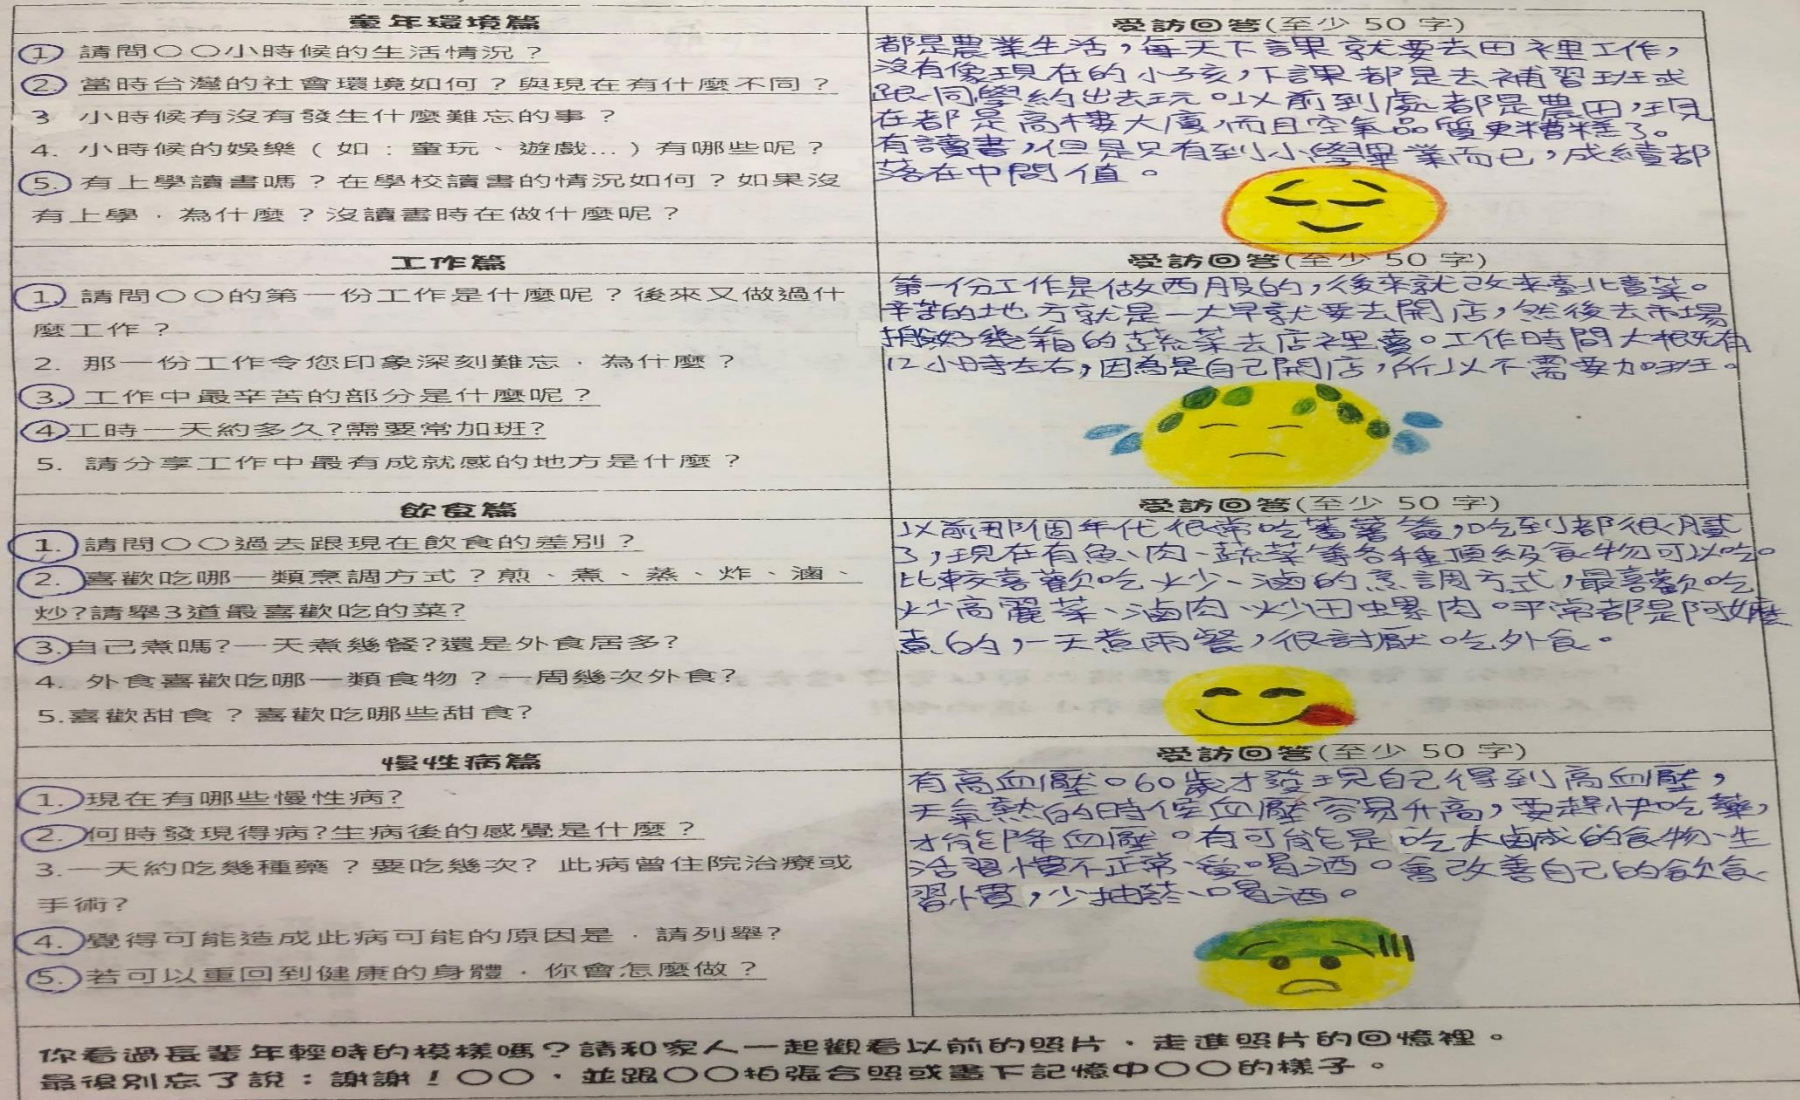 童年環境篇
1. 請問○○小時候的生活情況？
2. 當時台灣的社會環境如何？與現在有什麼不同？
3 小時候有沒有發生什麼難忘的事？
4. 小時候的娛樂（如：童玩、遊戲...）有哪些呢？
5. 有上學讀書嗎？在學校讀書的情況如何？如果沒
有上學，為什麼？沒讀書時在做什麼呢？
受訪回答(至少 50 字)
都是農業生活，每天下課就要去田裡工作，
沒有像現在的小孩，下課都是去補習班或
跟同學約出去玩。以前到處都是農田，現
在都是高樓大廈，而且空氣品質更糟糕了。
有讀書，但是只有到小學畢業而已，成績都
落在中間值。
工作篇
1. 請問○○的第一份工作是什麼呢？後來又做過什
麼工作？
2. 那一份工作令您印象深刻難忘，為什麼？
3. 工作中最辛苦的部分是什麼呢？
4 工時一天約多久?需要常加班?
5. 請分享工作中最有成就感的地方是什麼？
受訪回答(至少 50 字)
第一份工作是做西服的，後來就改來臺北賣菜。
辛苦的地方就是一大早就要去開店，然後去市場
搬好幾箱的蔬菜去店裡賣。工作時間大概有
12小時左右，因為是自己開店，所以不需要加班。
飲食篇
1. 請問○○過去跟現在飲食的差別？
2. 喜歡吃哪一類烹調方式？煎、煮、蒸、炸、滷、
炒?請舉3道最喜歡吃的菜?
3.自己煮嗎?一天煮幾餐?還是外食居多?
4. 外食喜歡吃哪一類食物？一周幾次外食?
5.喜歡甜食？喜歡吃哪些甜食?
受訪回答(至少 50 字)
以前那個年代很常吃蕃薯簽，吃到都很膩
了，現在有魚、肉、蔬菜等各種頂級食物可以吃。
比較喜歡吃炒、滷的烹調方式，最喜歡吃
炒高麗菜、滷肉、炒田螺肉。平常都是阿嬤
煮的，一天煮兩餐，很討厭吃外食。
慢性病篇
1. 現在有哪些慢性病?
2. 何時發現得病?生病後的感覺是什麼？
3.一天約吃幾種藥？要吃幾次? 此病曾住院治療或
手術?
4. 覺得可能造成此病可能的原因是，請列舉?
5. 若可以重回到健康的身體，你會怎麼做？
受訪回答(至少 50 字)
有高血壓。60歲才發現自己得到高血壓，
天氣熱的時候血壓容易升高，要趕快吃藥，
才能降血壓。有可能是吃太鹹的食物、生
活習慣不正常、愛喝酒。會改善自己的飲食
習慣，少抽菸、喝酒。
你看過長輩年輕時的模樣嗎？請和家人一起觀看以前的照片，走進照片的回憶裡。
最後別忘了說：謝謝！○○，並跟○○拍張合照或畫下記憶中○○的樣子。